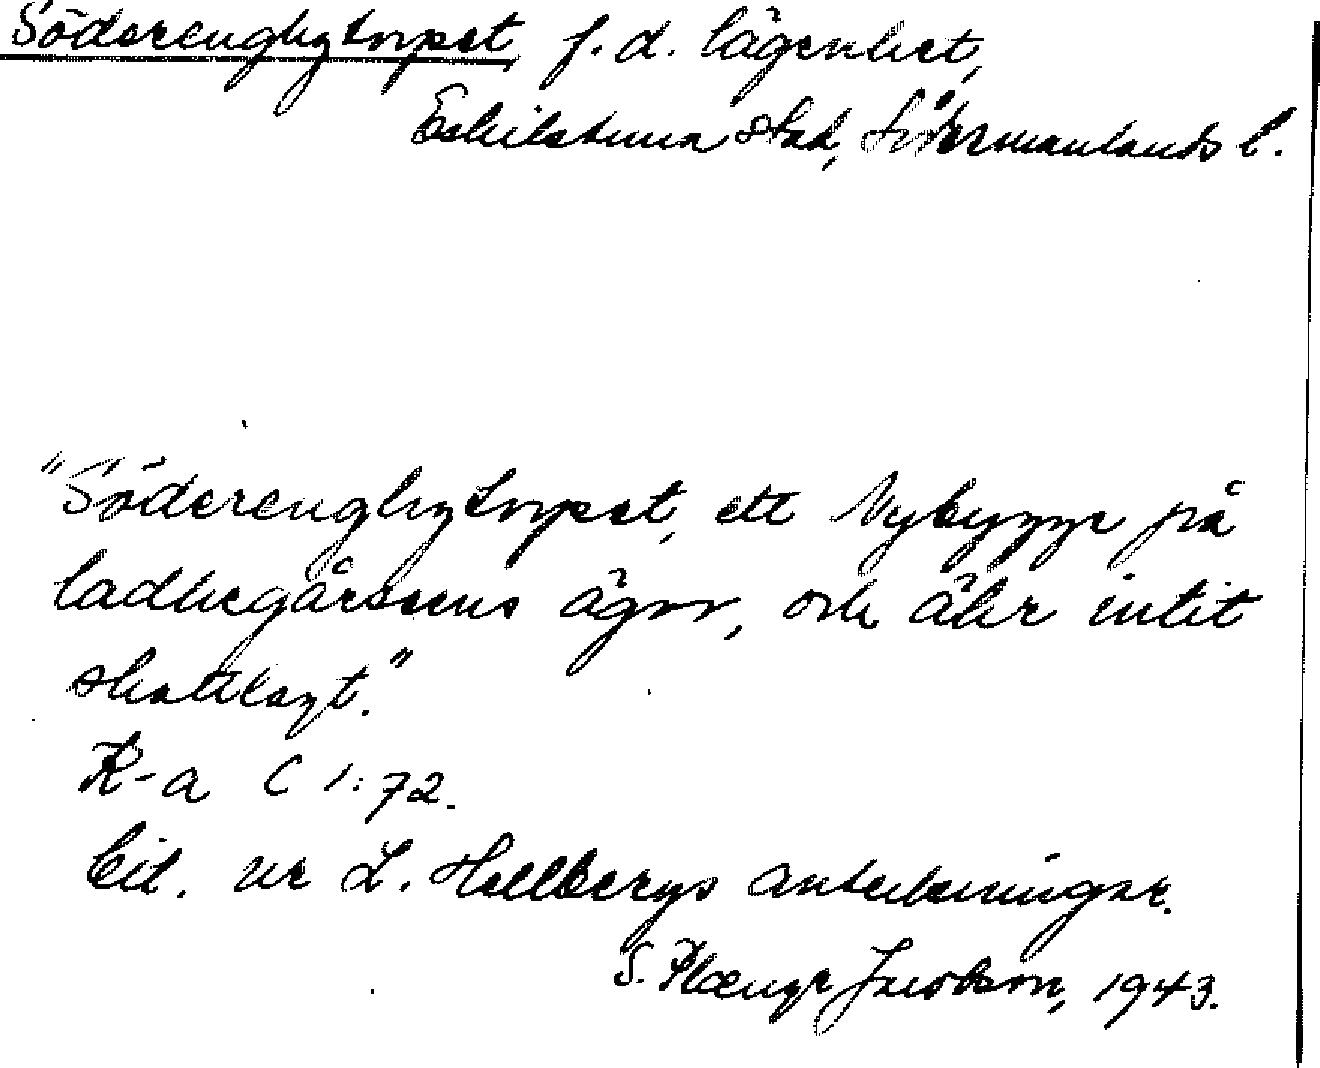 Söderenghztorpet, f. d. lägenhet,
Eskilstuna stad, Södermanlands l.
"Söderenghztorpet, ett Nybygge på
ladhegårssens ägor, och ähr intit
skattlagt."
K-a C 1:72.
Cit. ur L. Hellbergs anteckningar.
S. Plœnge Jacobson, 1943.